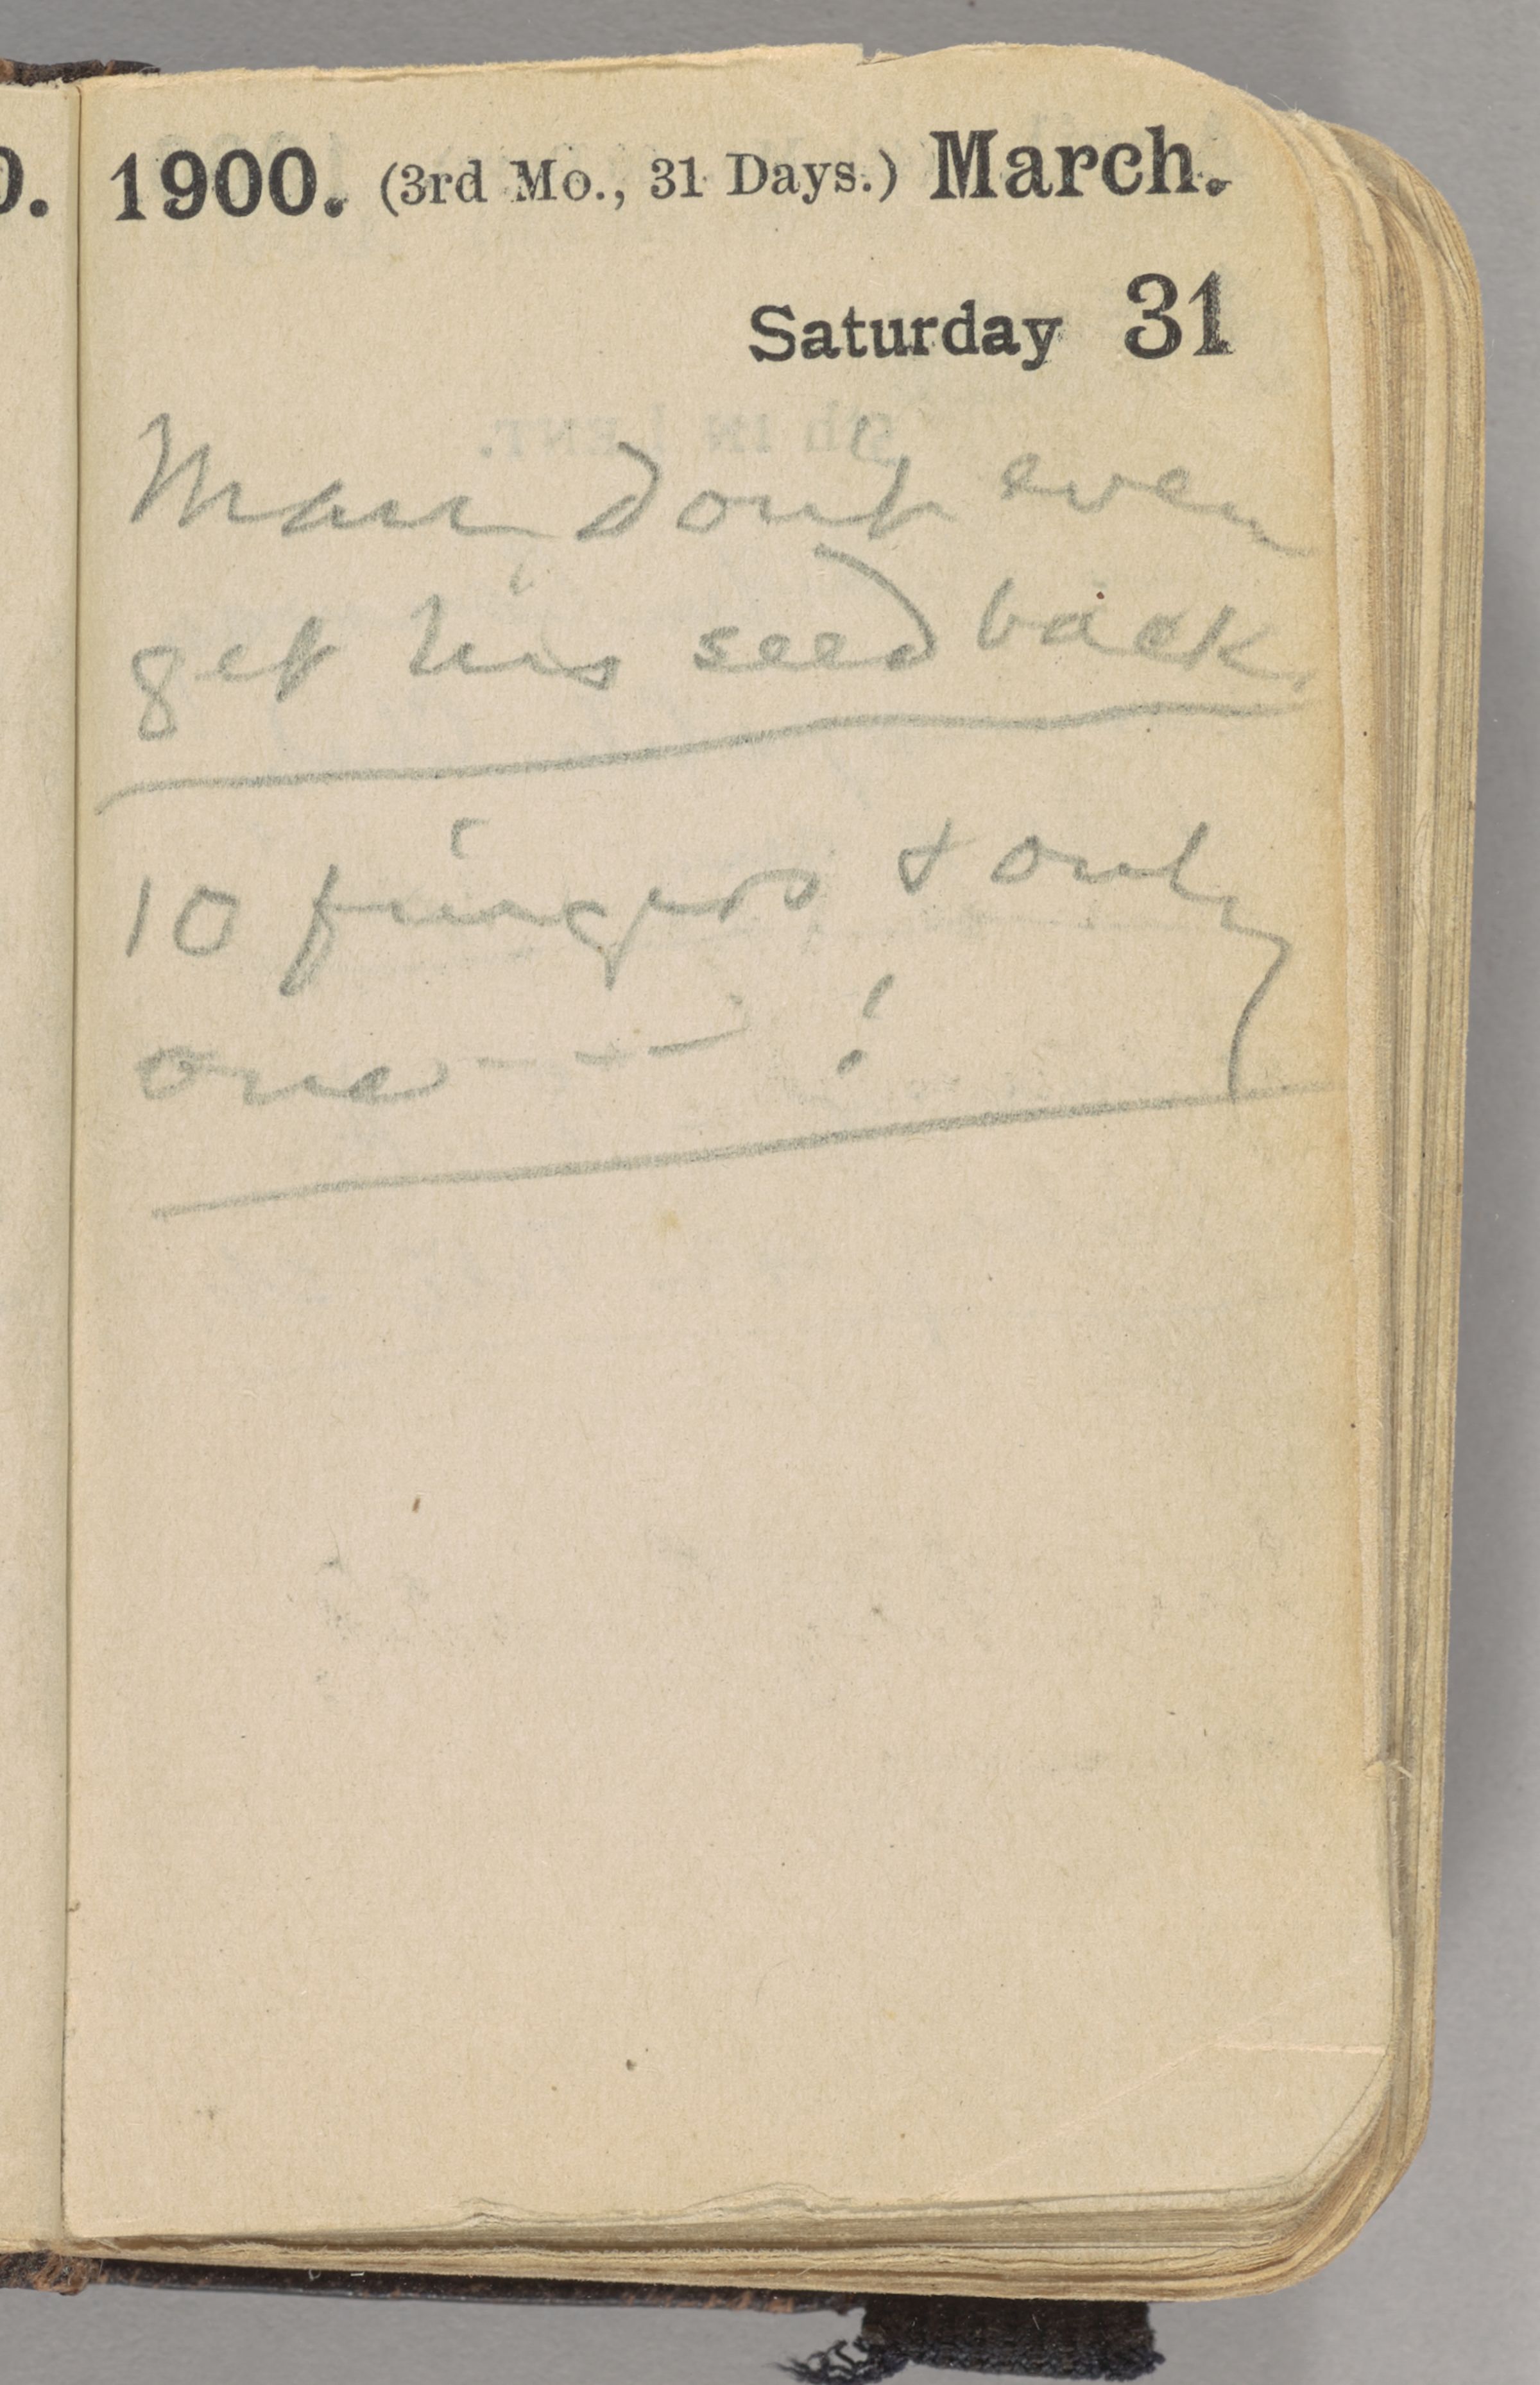 0. 1900. (3rd Mo., 31 Days.) March.
Saturday 31
Man dont even
get his seed back.
10 fingers & only
one - - - !